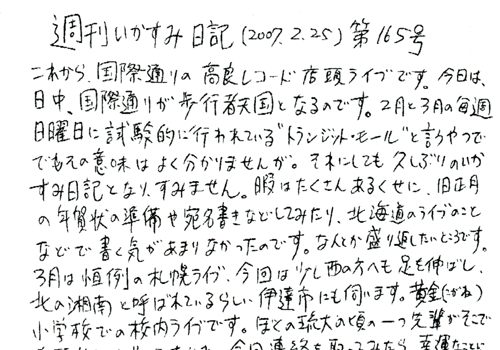 週刊いかすみ日記(2007.2.25)第165号
これから、国際通りの高良レコード店頭ライブです。今日は、
日中、国際通りが歩行者天国となるのです。2月と3月の毎週
日曜日に試験的に行われている"トランジット・モール"と言うやつで
でもその意味はよく分かりませんが。それにしても久しぶりのいか
すみ日記となり、すみません。暇はたくさんあるくせに、旧正月
の年賀状の準備や宛名書きなどしてみたり、北海道のライブのこと
などで書く気があまりなかったのです。なんとか盛り返したいところです。
3月は恒例の札幌ライブ、今回は少し西の方へも足を伸ばし、
北の湘南と呼ばれているらしい伊達市にも伺います。黄金(こがね)
小学校での校内ライブです。ぼくの琉大の頃の一つ先輩がそこで
今回連絡を取ってみたら、幸運なことに